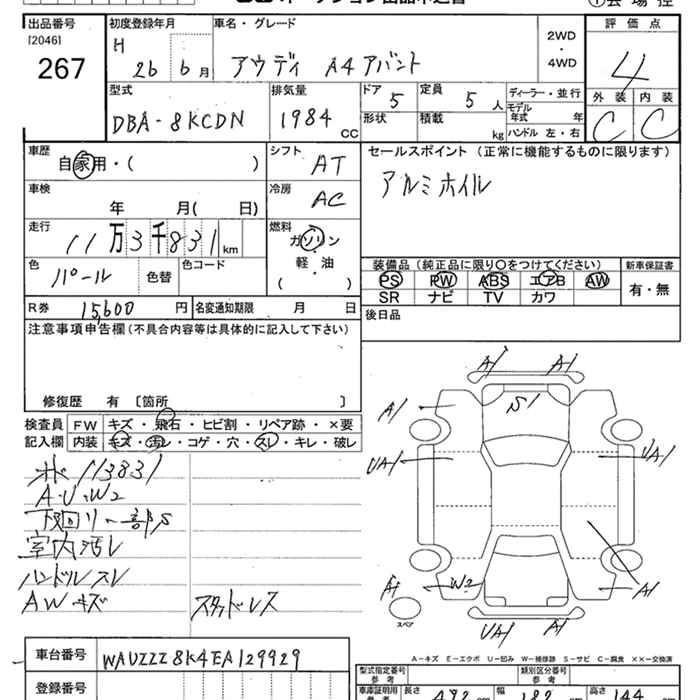 出品番号 初度登録年月 車名・グレード 評価点
[2046] H
267 26 6月 アウディ A4アバント 2WD・4WD 4
型式 排気量 ドア 5 定員 5人 ディーラー・並行 外装 内装
DBA-8KCDN 1984 CC 形状 積載 kg モデル年式 年 C C
ハンドル 左・右
車歴 自家用・( ) シフト AT セールスポイント (正常に機能するものに限ります)
アルミホイル
車検 年 月( 日) 冷房 AC
走行 11万3千831km 燃料 ガソリン
軽・油
( )
色 パール 色替 色コード 装備品 (純正品に限り○をつけてください) 新車保証書
PS PW ABS エアB AW 有・無
SR ナビ TV カワ
R券 15,600円 名変通知期限 月 日 後日品
注意事項申告欄(不具合内容等は具体的に記入して下さい)
修復歴 有 〔箇所 〕
検査員 FW キズ・飛石・ヒビ割・リペア跡・×要
記入欄 内装 キズ・汚レ・コゲ・穴・スレ・キレ・破レ
113831
A・U・W2
下回り一部S
室内汚レ
ハンドルスレ
AWキズ スタッドレス
A1 A1
A1 S1
UA1 UA1
A1 W2 A1
スペア
UA1 A1
A-キズ E-エクボ U-凹み W-補修跡 S-サビ C-腐食 ××-交換済
車台番号 WAUZZZ8K4EA129929 型式指定番号 参考 類別区分番号 参考
登録番号 車庫証明用 参考 長さ 幅 182 高さ 144